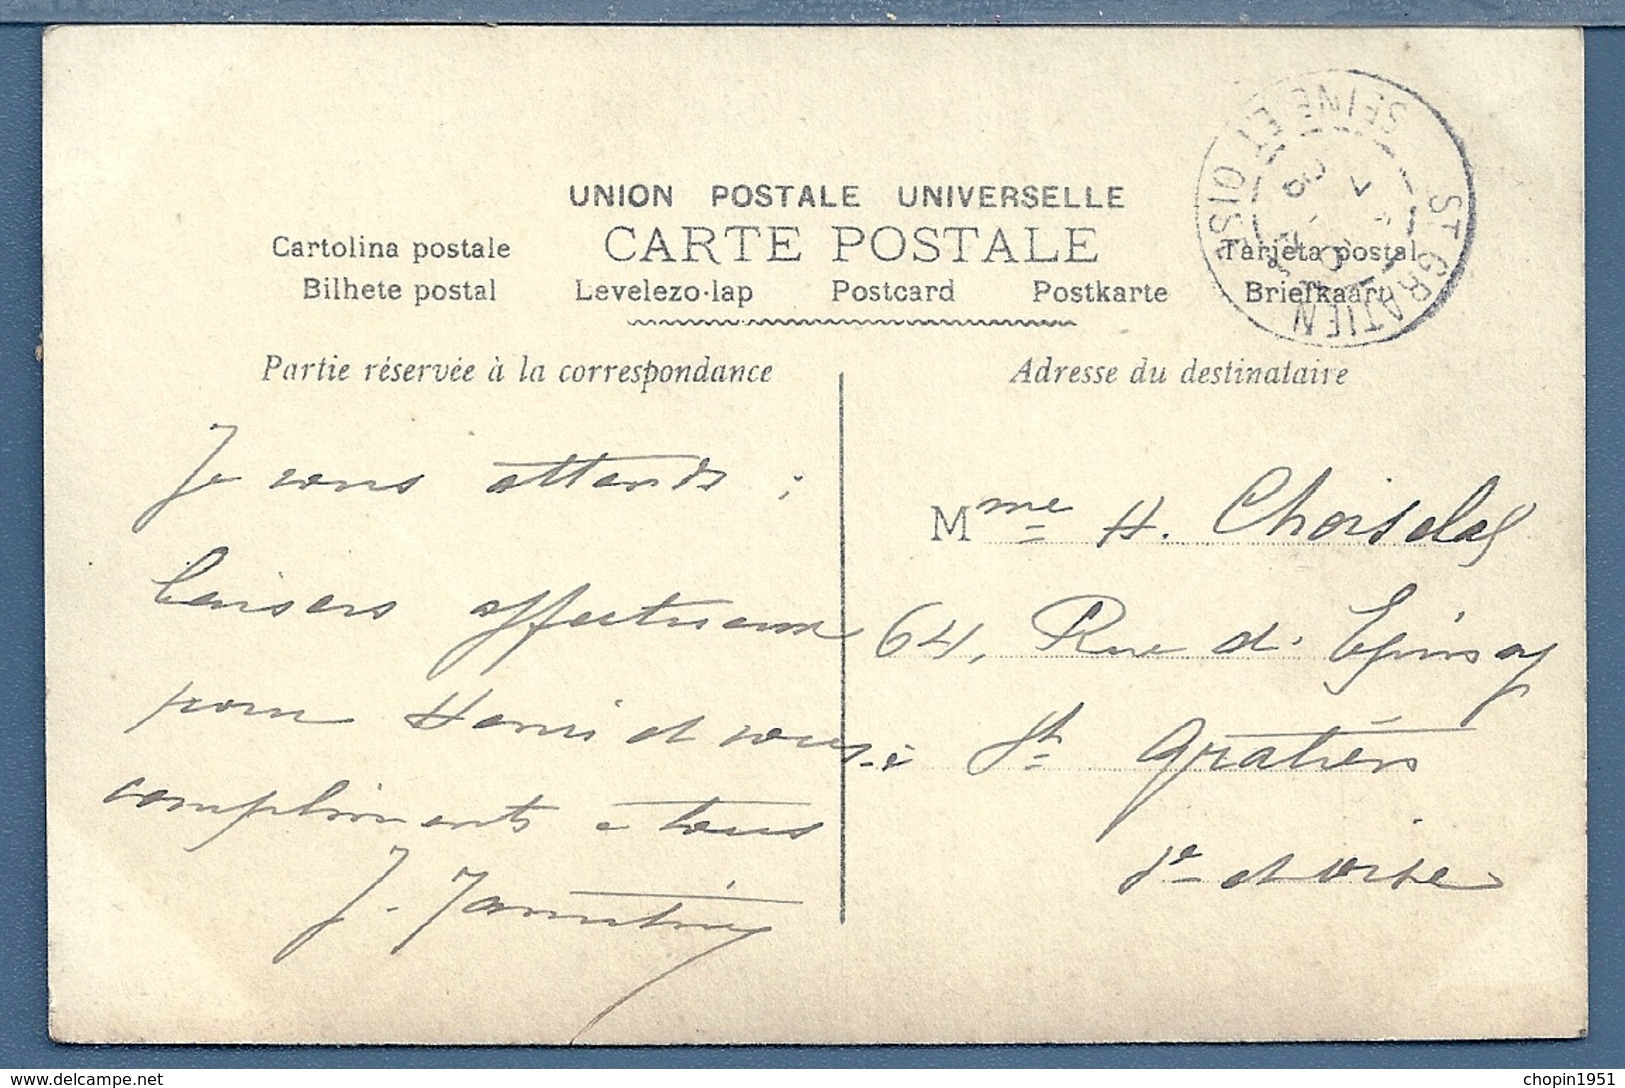 UNION POSTALE UNIVERSELLE
CARTE POSTALE
Cartolina postale
Tarjeta postal
Bilhete postal Levelezo-lap Postcard Postkarte Briefkaart
ST GRATIEN
SEINE ET OISE
Partie réservée à la correspondance
Je vous attends ;
baisers affectueux
pour Henri et vous
compliments à tous
J.
Adresse du destinataire
Mme H.
64, Rue d'Epinay
à St Gratien
Se et Oise
chopin1951